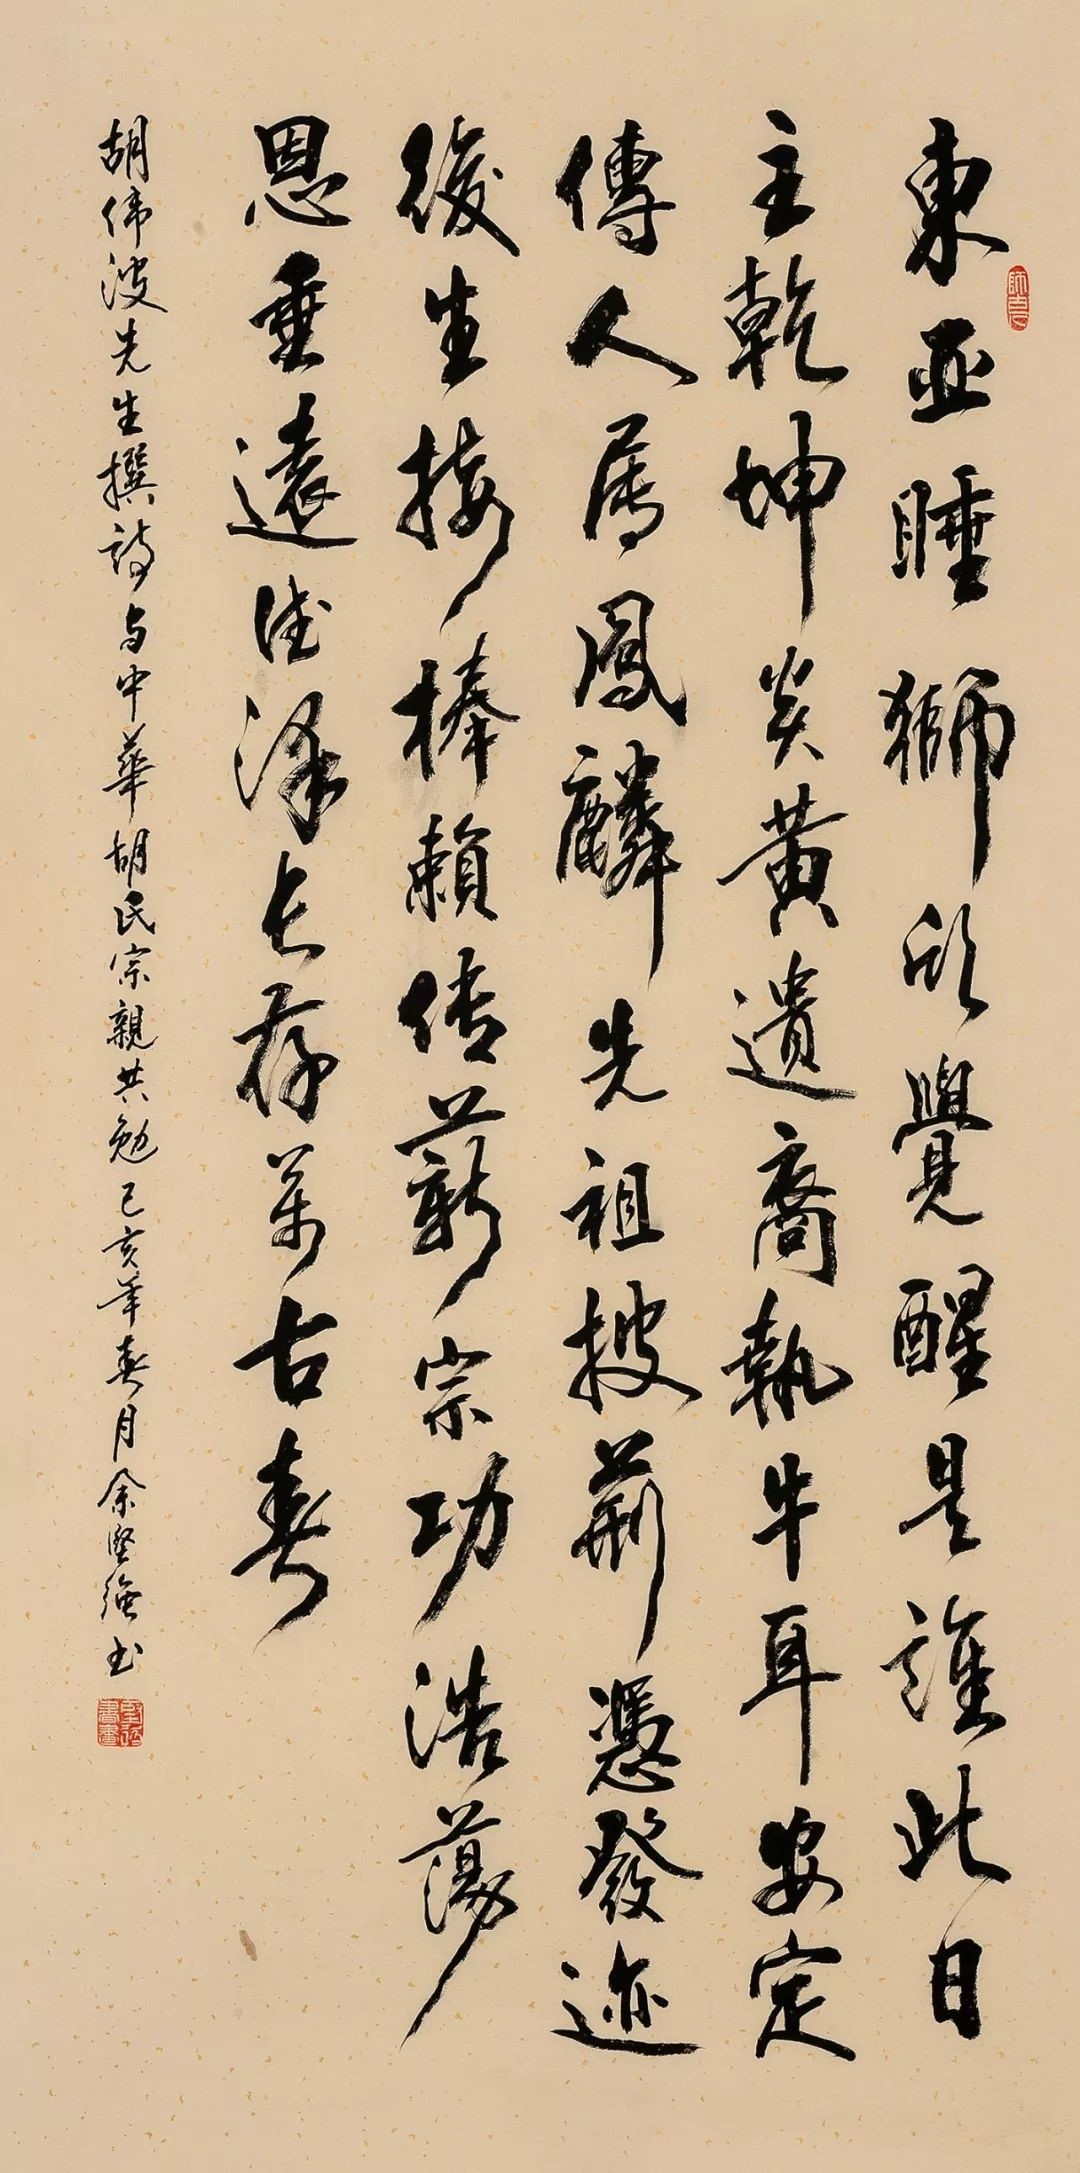 東亞睡獅欣覺醒是誰此日
主乾坤炎黄遺裔執牛耳安定
傳人属鳳麟先祖披荆憑發迹
後生接棒賴传薪宗功浩蕩
恩垂遠德澤长存萬古春
胡伟波先生撰詩与中華胡氏宗親共勉己亥年春月余堅強书